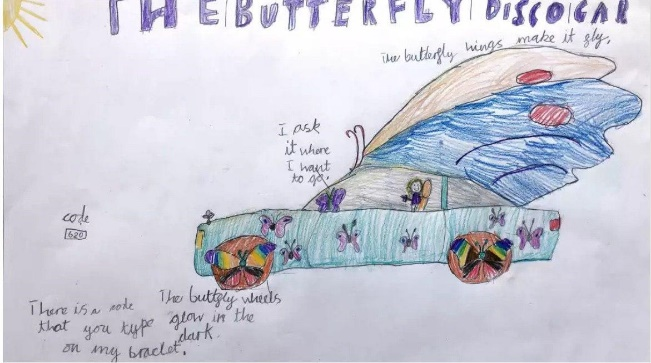 THE BUTTERFLY DISCO CAR
The butterfly wings make it fly.
I ask
it where
I want
to go.
code
620
There is a code
that you type
on my braclet.
The buttefly wheels
glow in the
dark.